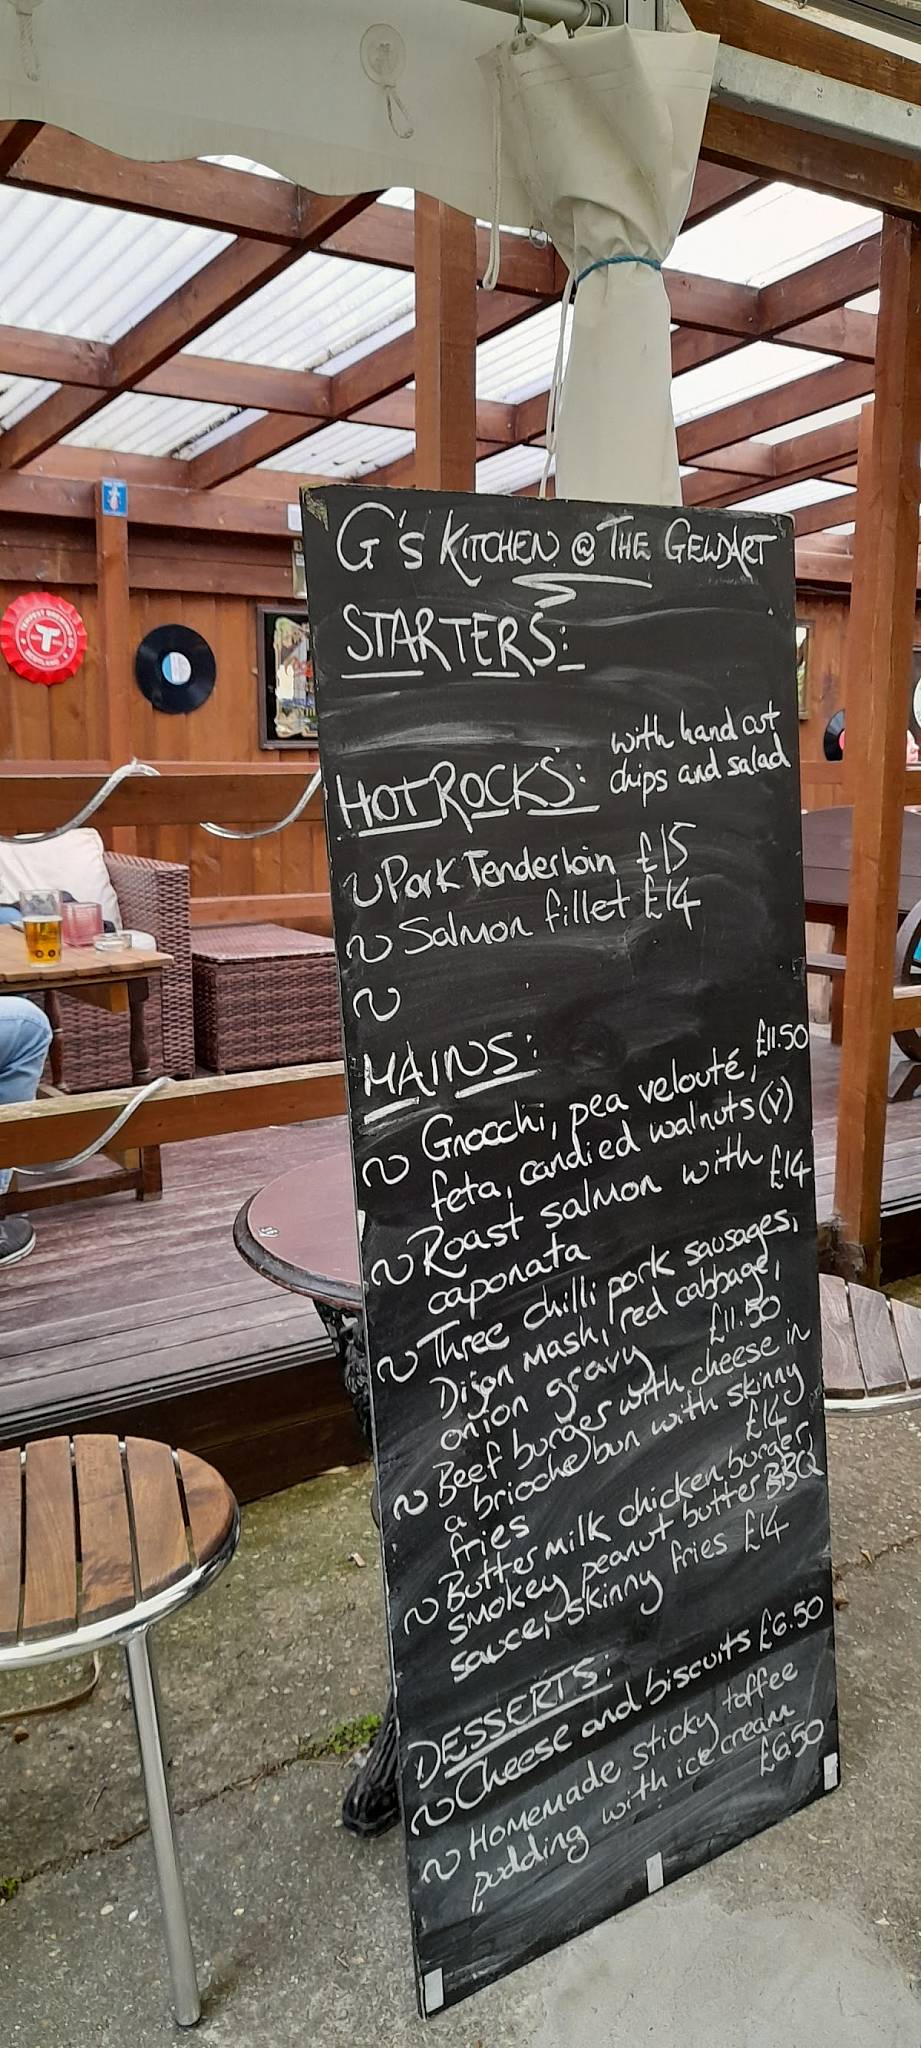 G's KITCHEN @ THE GELDART
STARTERS:
HOT ROCKS: with hand cut
chips and salad
~ Pork Tenderloin £15
~ Salmon fillet £14
~
MAINS:
~ Gnocchi, pea velouté, £11.50
feta, candied walnuts (v)
~ Roast salmon with £14
caponata
~ Three chilli pork sausages,
Dijon mash, red cabbage,
onion gravy £11.50
~ Beef burger with cheese in
a brioche bun with skinny
fries £14
~ Butter milk chicken burger,
smokey peanut butter BBQ
sauce, skinny fries £14
DESSERTS:
~ Cheese and biscuits £6.50
~ Homemade sticky toffee
pudding with ice cream
£6.50